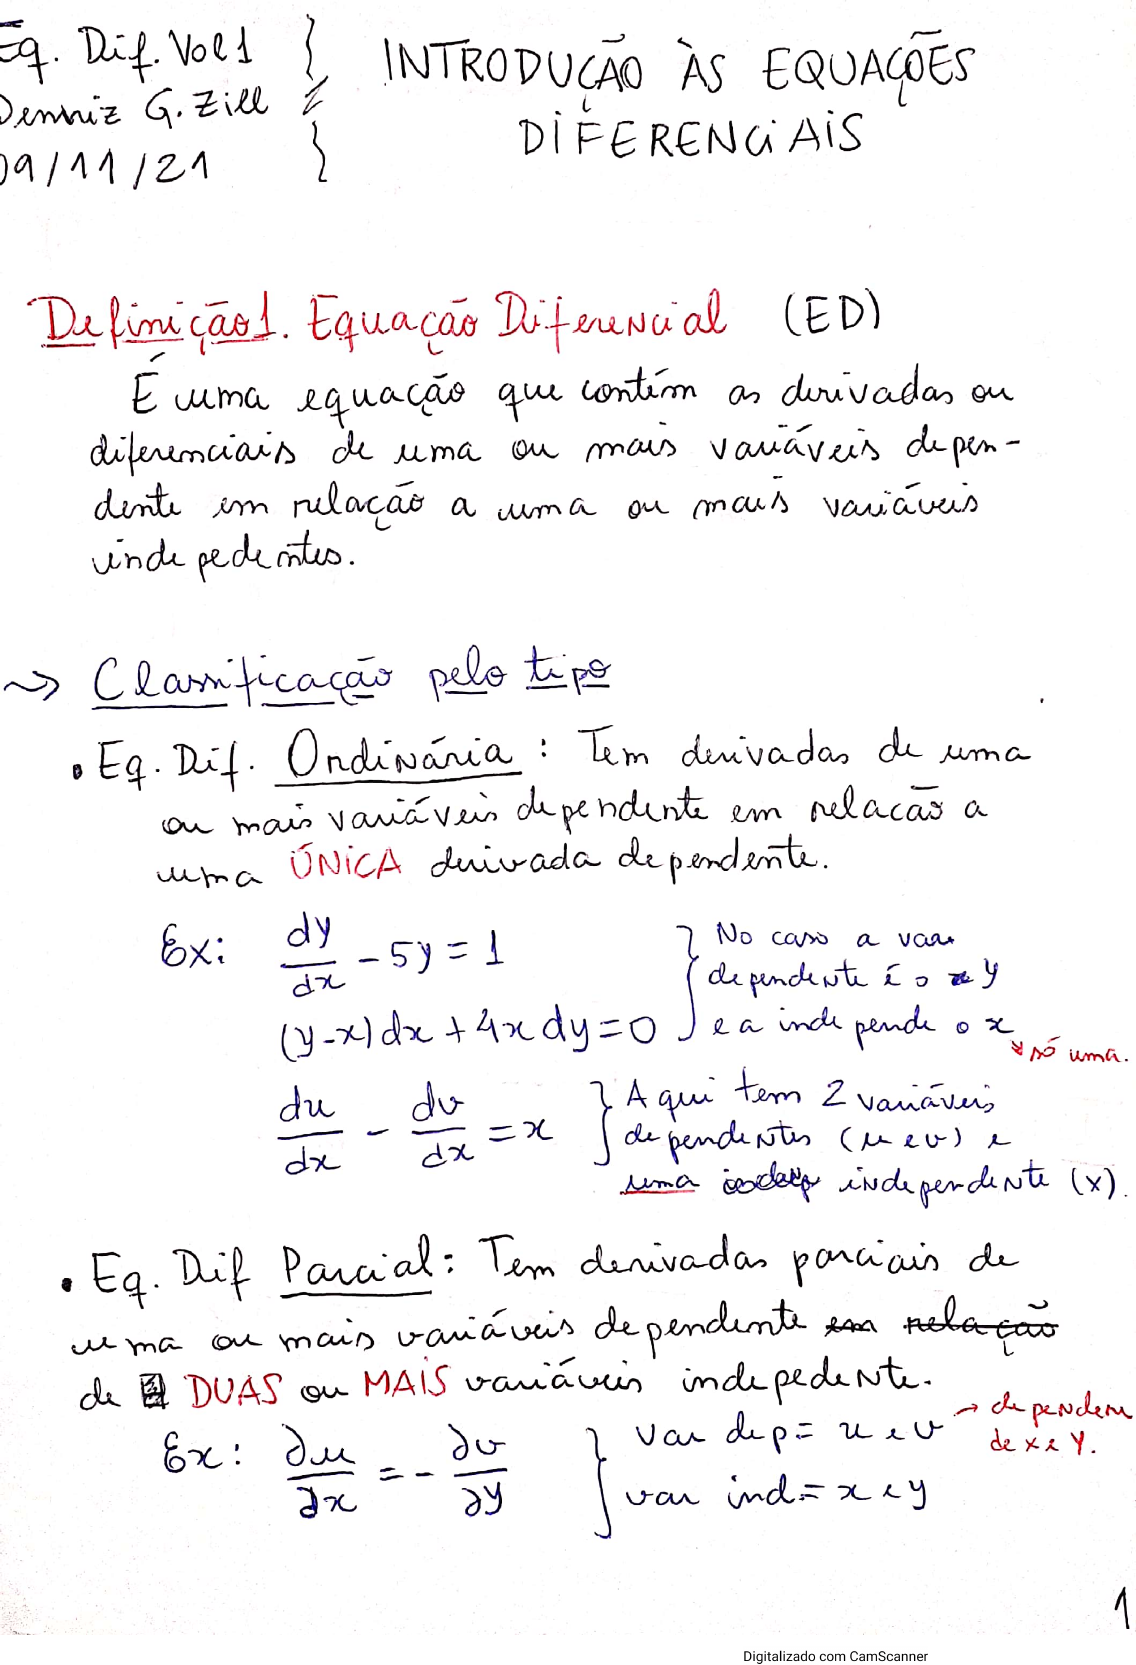 Eq. Dif. Vol 1
Denniz G. Zill
09/11/21
INTRODUÇÃO ÀS EQUAÇÕES
DIFERENCIAIS
Definição 1. Equação Diferencial (ED)
É uma equação que contém as derivadas ou
diferenciais de uma ou mais variáveis depen-
dente em relação a uma ou mais variáveis
indepedentes.
~> Classificação pelo tipo
• Eq. Dif. Ordinária: Tem derivadas de uma
ou mais variáveis dependente em relacão a
uma ÚNICA derivada dependente.
Ex: dy/dx - 5y = 1
(y-x)dx + 4x dy = 0
} No caso a var
dependente é o y
e a independe o x
↘ só uma.
du/dx - dv/dx = x
} Aqui tem 2 variáveis
dependentes (u e v) e
uma independente (x).
• Eq. Dif Parcial: Tem derivadas parciais de
uma ou mais variáveis dependente em relação
de DUAS ou MAIS variáveis indepedente.
Ex: ∂u/∂x = - ∂v/∂y
} var dep = u e v → dependem
de x e y.
var ind. = x e y
1
Digitalizado com CamScanner